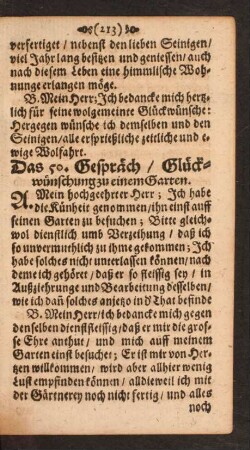 (213)
verfertiget / nebenst den lieben Seinigen /
viel Jahr lang besitzen und geniessen / auch
nach diesem Leben eine himmlische Woh-
nunge erlangen möge.
B. Mein Herr; Ich bedancke mich hertz-
lich für seine wolgemeinte Glückwünsche:
Hergegen wünsche ich demselben und den
Seinigen / alle ersprießliche zeitliche und e-
wige Wolfahrt.
Das 50. Gespräch / Glück-
wünschung zu einem Garten.
A Mein hochgeehrter Herr; Ich habe
die Künheit genommen / ihn einst auff
seinen Garten zu besuchen; Bitte gleich-
wol dienstlich umb Verzeihung / daß ich
so unvermuthlich zu ihme gekommen; Ich
habe solches nicht unterlassen können / nach
deme ich gehöret / daß er so fleissig sey / in
Außzierhunge und Bearbeitung desselben /
wie ich dañ solches anjetzo in d' That befinde
B. Mein Herr / ich bedancke mich gegen
denselben dienstfleissig / daß er mir die gros-
se Ehre anthut / und mich auff meinem
Garten einst besuchet; Er ist mir von Her-
tzen willkommen / wird aber allhier wenig
Lust empfinden können / alldieweil ich mit
der Gärtnerey noch nicht fertig / und alles
noch